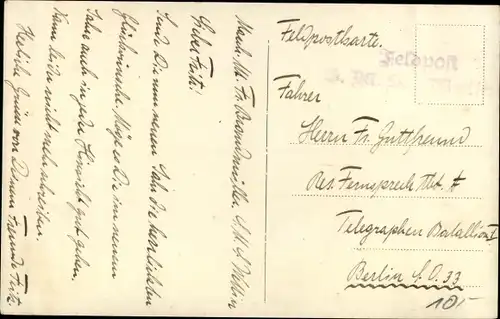 Masch. Mt. Fr. Brandmüller S.M.S. Wettin
Lieber Fritz!
Sende Dir zum neuen Jahr die herzlichsten
Glückwünsche. Möge es Dir im neuen
Jahre auch in jeder Hinsicht gut gehen.
Kann leider nicht mehr schreiben.
Herzliche Grüsse von Deinem Freunde Fritz.
Feldpostkarte
Feldpost
Fahrer
Herrn Fr. Guttfreund
Res. Fernsprech Abt. A
Telegraphen Batallion I
Berlin S.O. 33
10,-